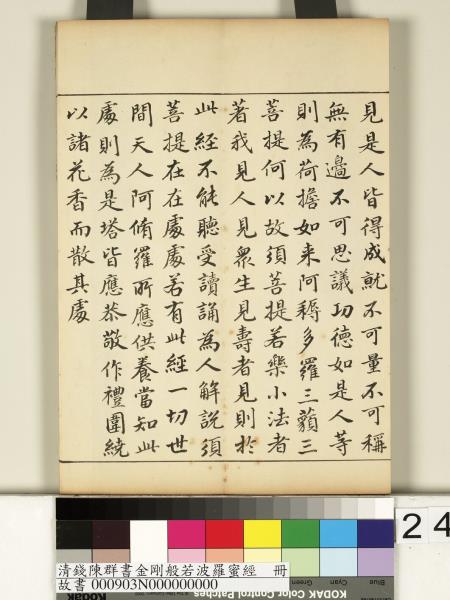 見是人皆得成就不可量不可稱
無有邊不可思議功德如是人等
則為荷擔如來阿耨多羅三藐三
菩提何以故須菩提若樂小法者
著我見人見眾生見壽者見則於
此經不能聽受讀誦為人解說須
菩提在在處處若有此經一切世
間天人阿脩羅所應供養當知此
處則為是塔皆應恭敬作禮圍繞
以諸花香而散其處
24
Blue
Cyan
Green
KODAK Color Control Patches
清錢陳群書金剛般若波羅蜜經 冊
故書 000903N000000000